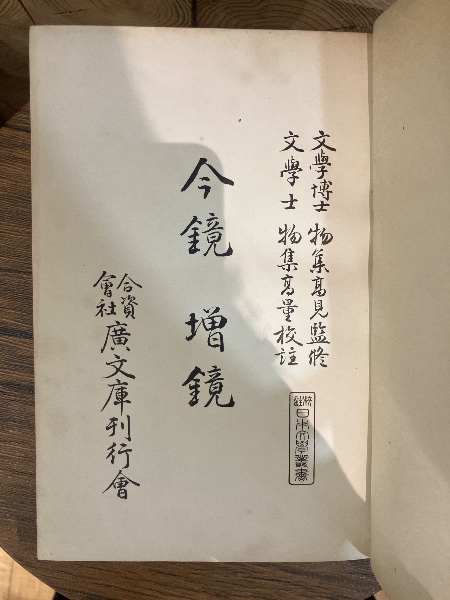 文學博士 物集高見監修
文學士 物集高量校註
校註 日本文學叢書
今鏡 增鏡
合資會社 廣文庫刊行會